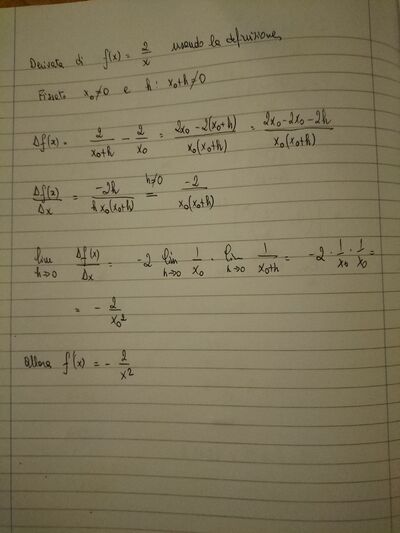 Derivata di f(x) = 2/x usando la definizione
Fissato x₀≠0 e h : x₀+h≠0
Δf(x) = 2/(x₀+h) - 2/x₀ = (2x₀-2(x₀+h))/(x₀(x₀+h)) = (2x₀-2x₀-2h)/(x₀(x₀+h))
Δf(x)/Δx = -2h/(h x₀(x₀+h)) =^(h≠0) -2/(x₀(x₀+h))
lim_(h→0) Δf(x)/Δx = -2 lim_(h→0) 1/x₀ · lim_(h→0) 1/(x₀+h) = -2 · 1/x₀ · 1/x₀ =
= - 2/x₀²
Allora f'(x) = - 2/x²